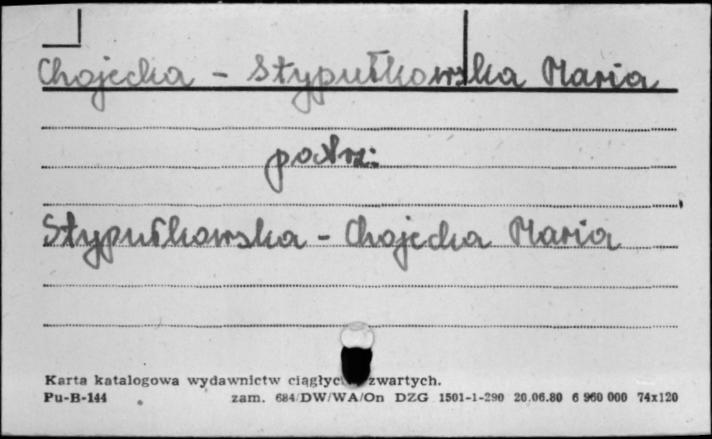 Chojecka - Stypułkowska Maria
patrz:
Stypułkowska - Chojecka Maria
Karta katalogowa wydawnictw ciągłyc zwartych.
Pu-B-144 zam. 684/DW/WA/On DZG 1501-1-290 20.06.80 6 960 000 74x120